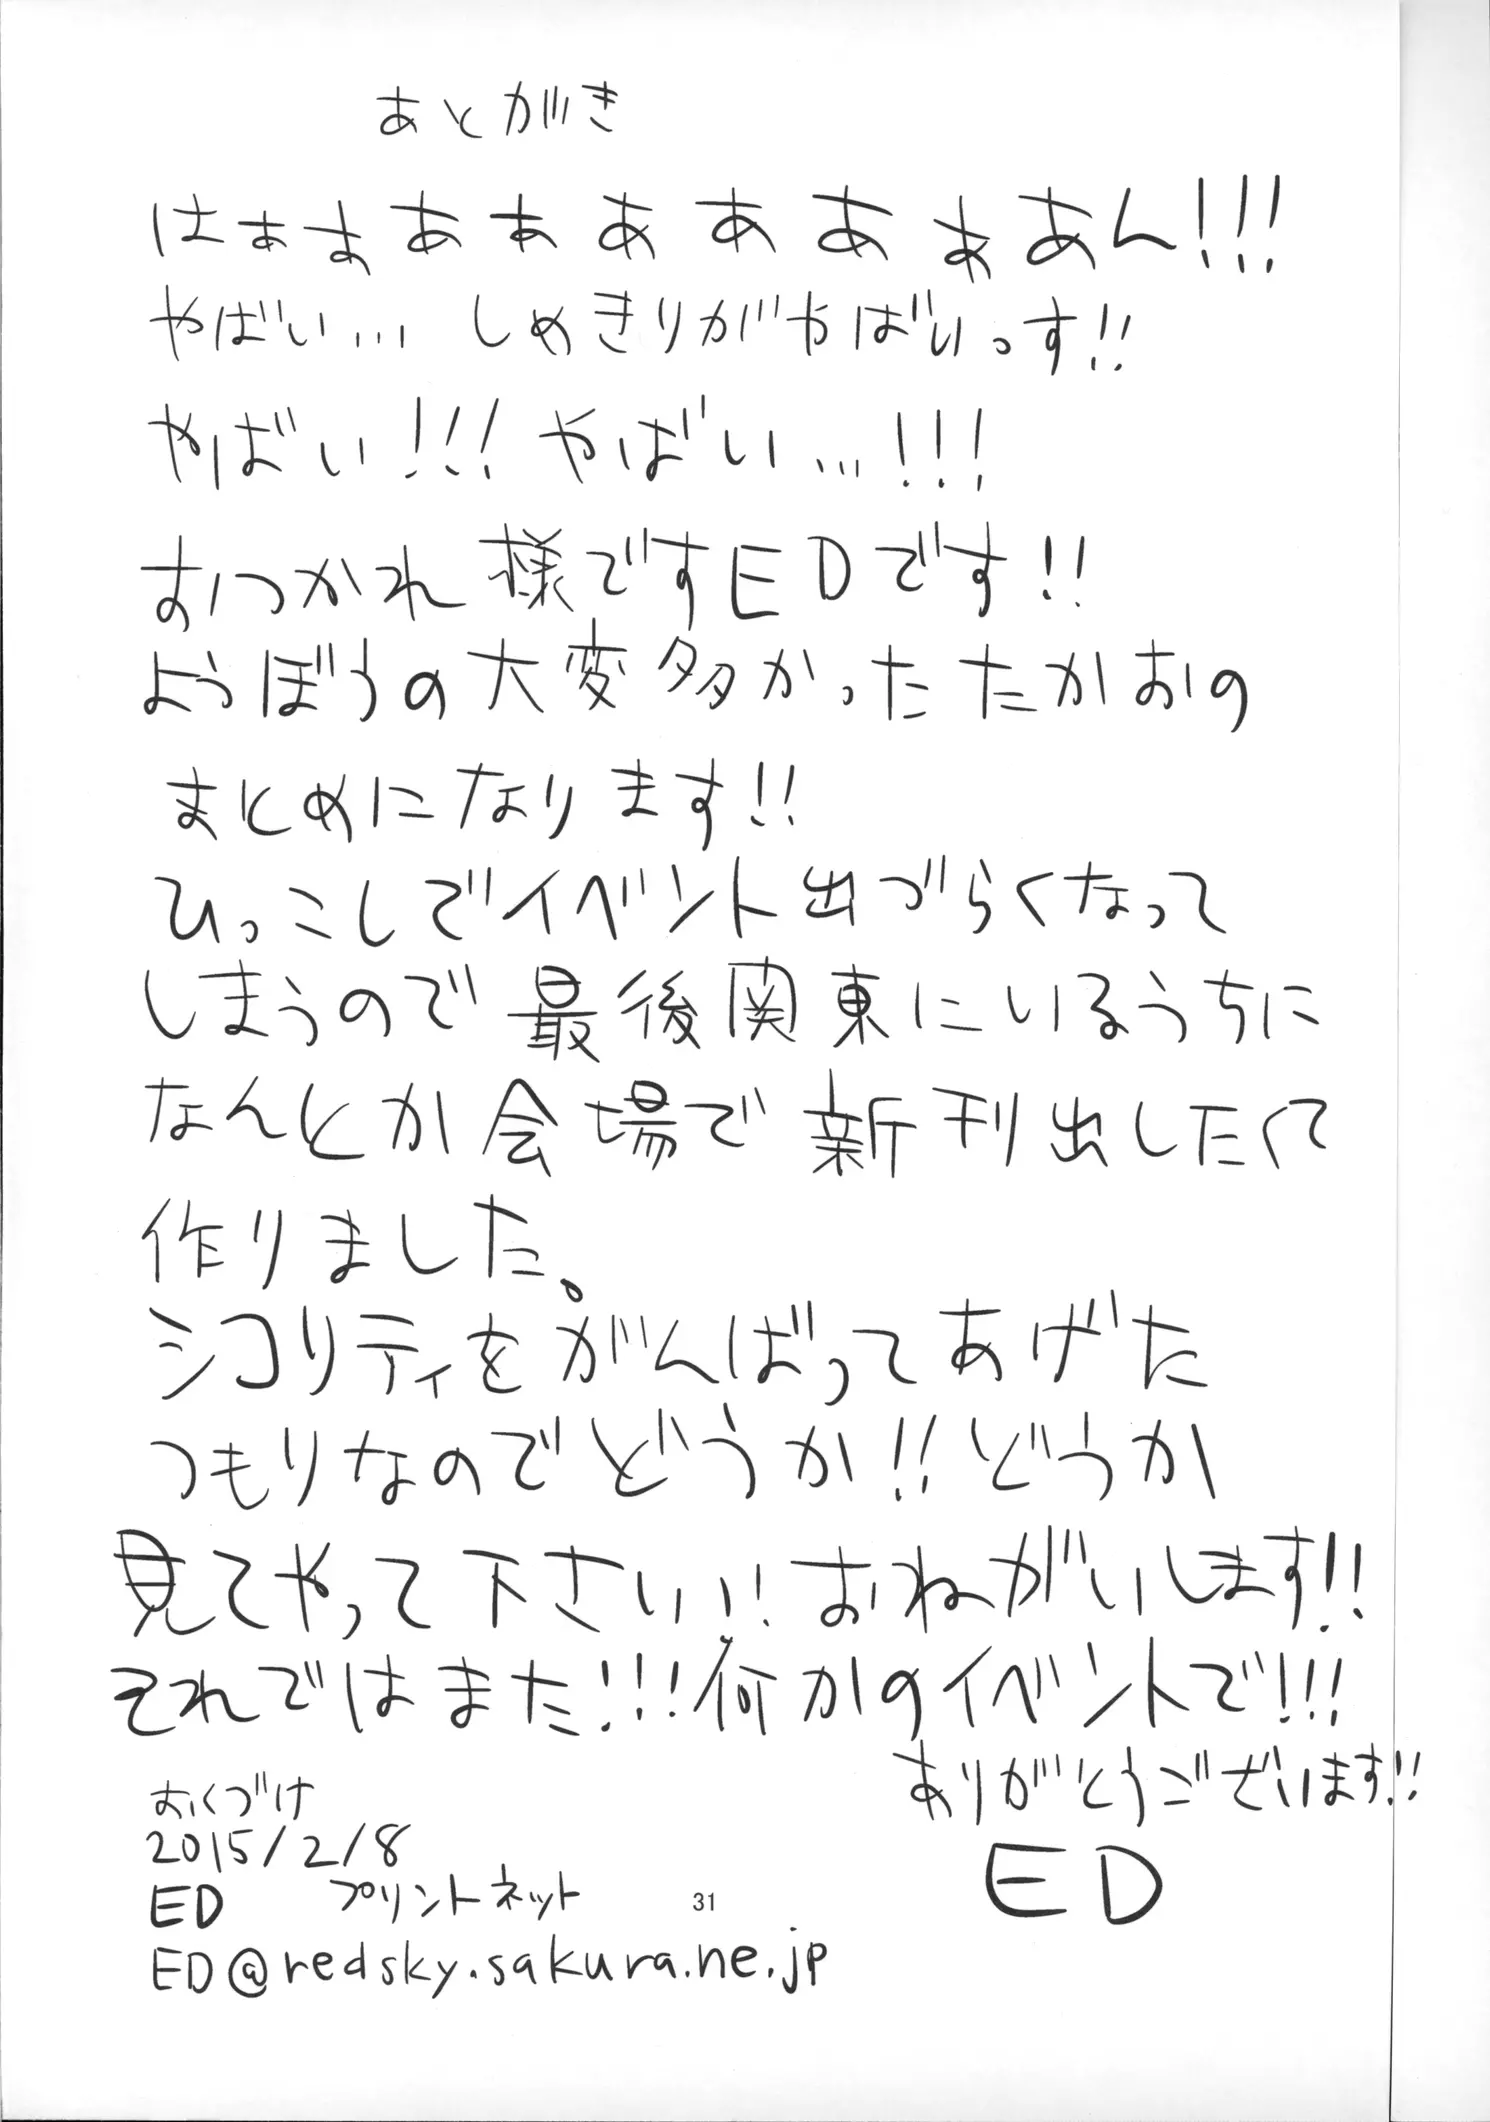 あとがき
はぁまあぁあああぁあん!!!
やばい… しめきりがやばいっす!!
やばい!!! やばい…!!!
おつかれ様ですEDです!!
ようぼうの大変多かったたかおの
まとめになります!!
ひっこしでイベント出づらくなって
しまうので最後関東にいるうちに
なんとか会場で新刊出したくて
作りました。
シコリティをがんばってあげた
つもりなのでどうか!!どうか
見てやって下さいい!おねがいします!!
それではまた!!!何かのイベントで!!!
ありがとうございます!!
ED
おくづけ
2015/2/8
ED プリントネット
31
ED@redsky.sakura.ne.jp